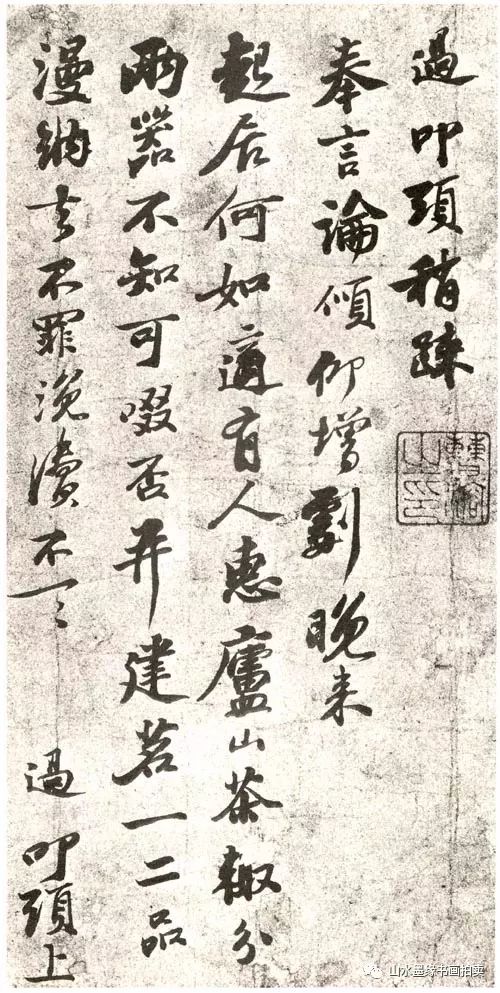 過叩頭稍踈
奉言論傾仰增劇晚来
起居何如適有人惠廬山茶輙分
兩器不知可啜否并建茗一二品
漫納去不罪浼瀆不一一 過叩頭上
山水墨缘书画拍卖